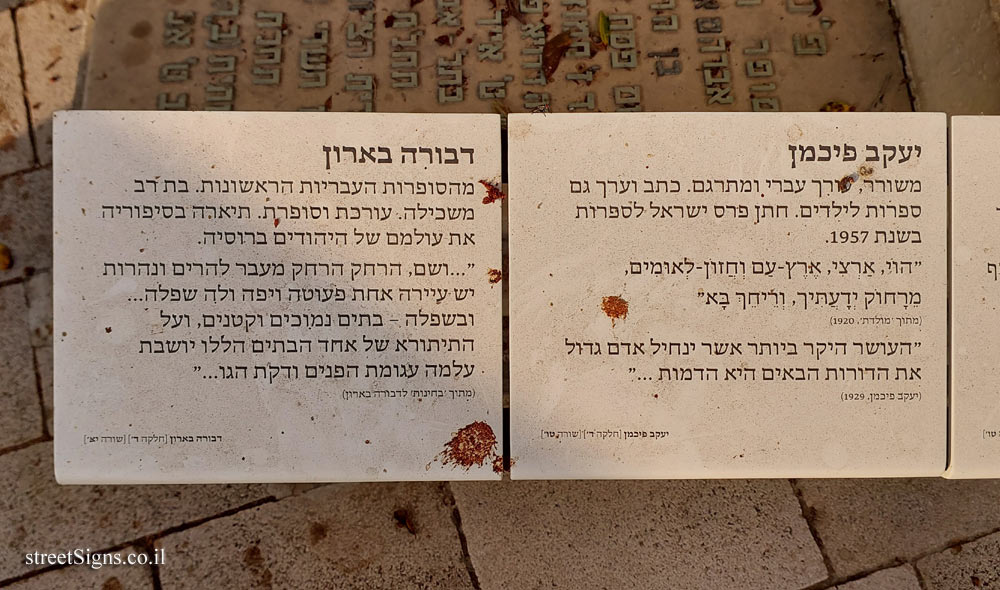 יעקב פיכמן
משורר, עורך עברי ומתרגם. כתב וערך גם
ספרות לילדים. חתן פרס ישראל לספרות
בשנת 1957.
"הוֹי, אַרְצִי, אֶרֶץ-עַם וְחֲזוֹן-לְאוּמִּים,
מֵרָחוֹק יְדַעֲתִּיךְ, וְרֵיחֵךְ בָּא"
(מתוך 'מולדת', 1920)
"העושר היקר ביותר אשר ינחיל אדם גדול
את הדורות הבאים היא הדמות ..."
(יעקב פיכמן, 1929)
יעקב פיכמן [חלקה ד'] [שורה טו']
דבורה בארון
מהסופרות העבריות הראשונות. בת רב
משכילה. עורכת וסופרת. תיארה בסיפוריה
את עולמם של היהודים ברוסיה.
"...ושם, הרחק הרחק מעבר להרים ונהרות
יש עיירה אחת פעוטה ויפה ולה שפלה...
ובשפלה – בתים נמוכים וקטנים, ועל
התיתורא של אחד הבתים הללו יושבת
עלמה עגומת הפנים ודקת הגו..."
(מתוך 'בחינות' לדבורה בארון)
דבורה בארון [חלקה ד'] [שורה יא']
streetSigns.co.il